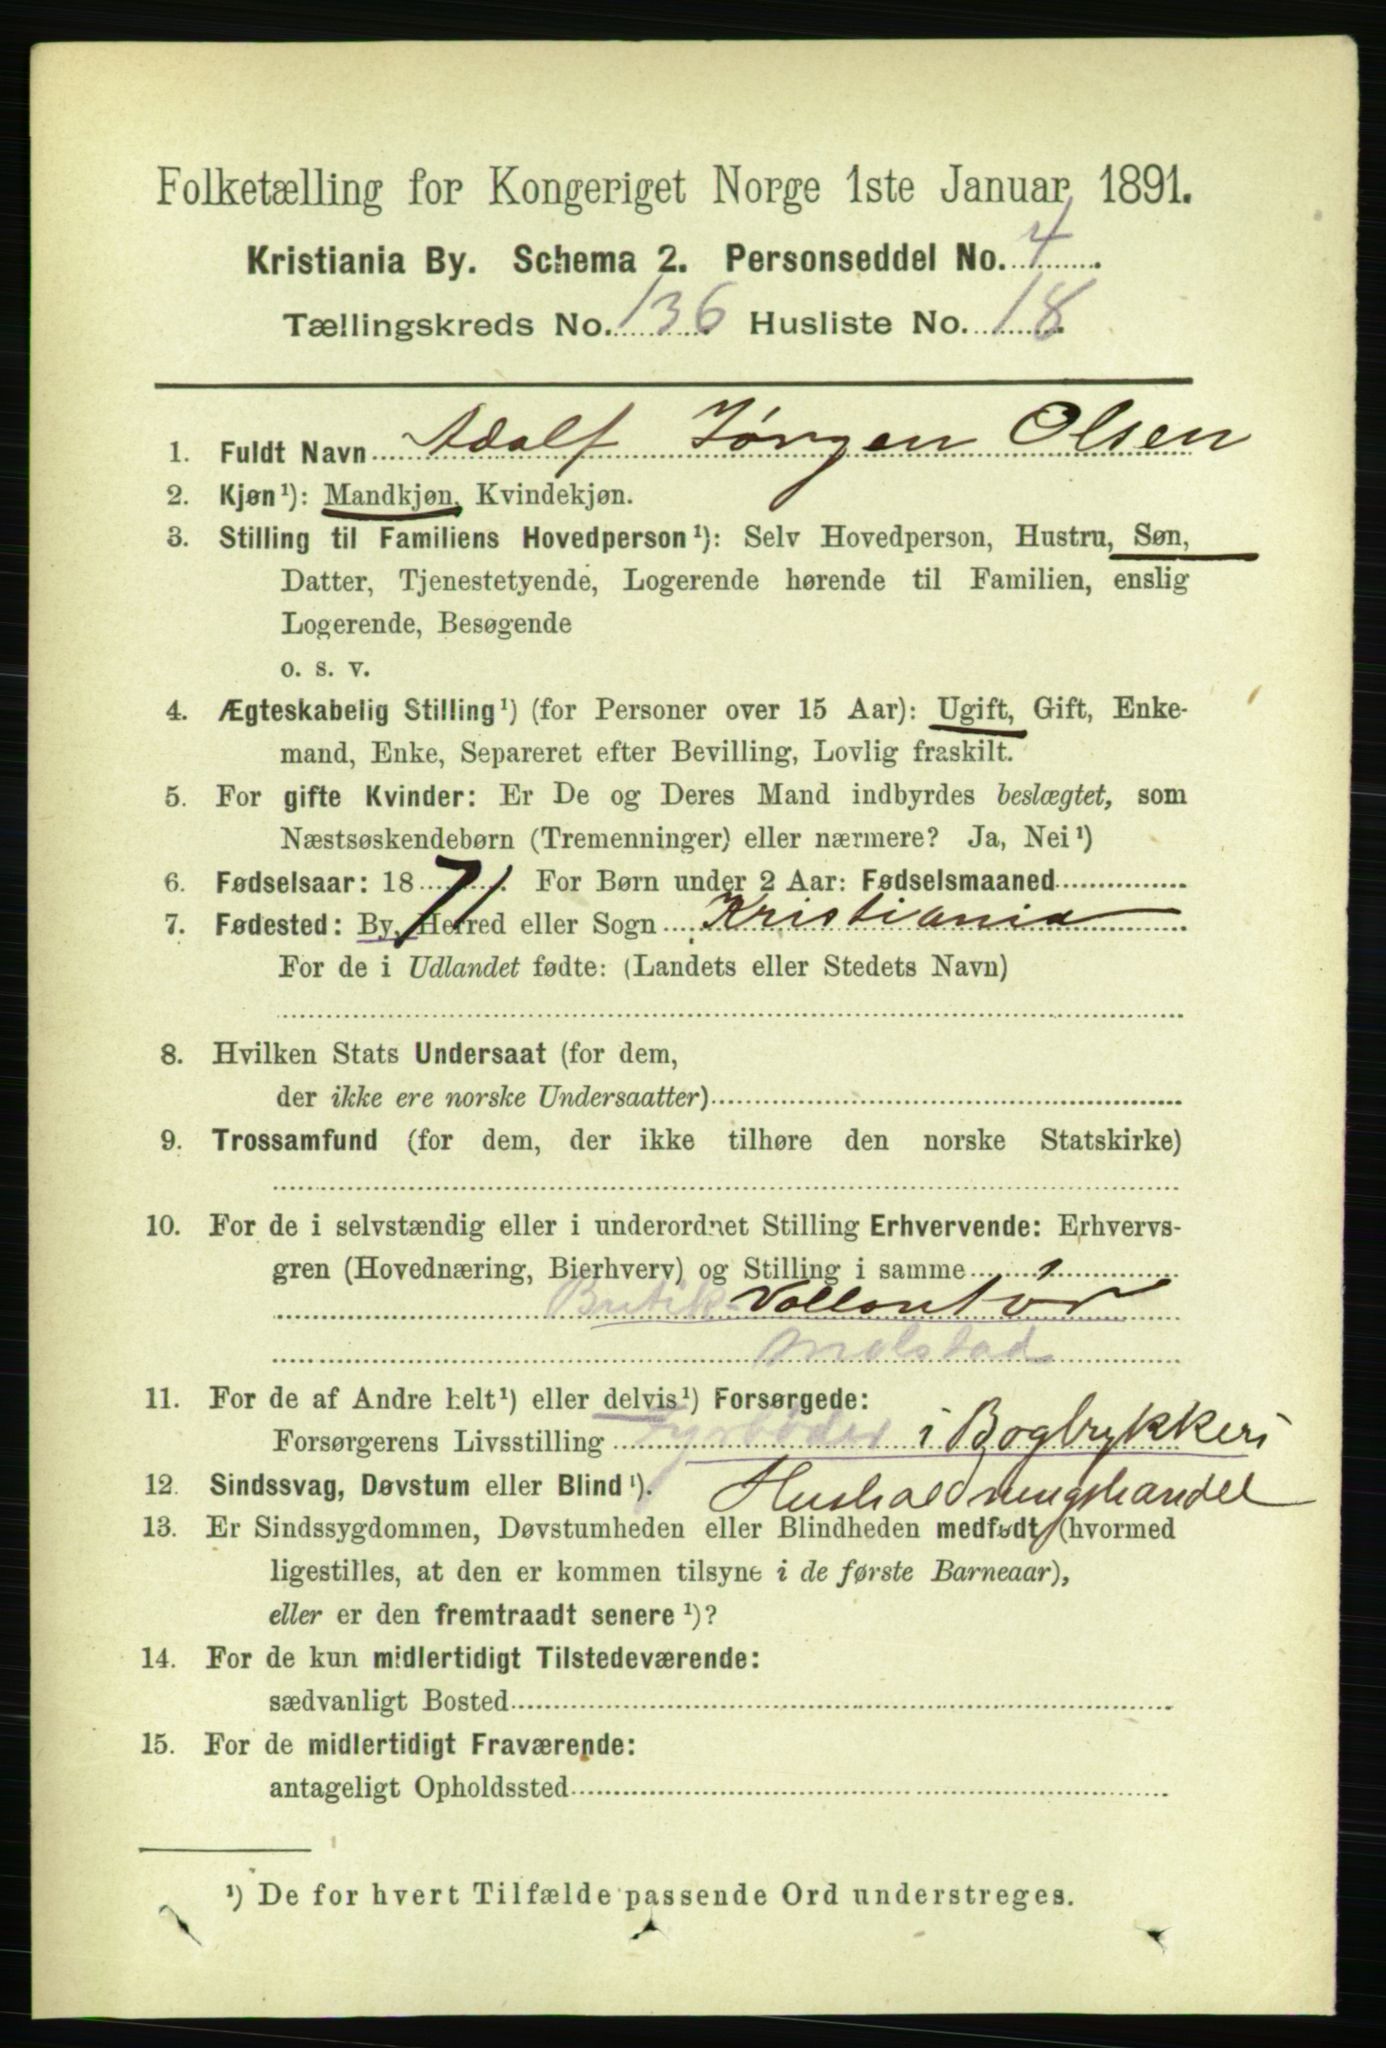 Folketælling for Kongeriget Norge 1ste Januar 1891.
Kristiania By. Schema 2. Personseddel No. 4
Tællingskreds No. 136 Husliste No. 18
1. Fuldt Navn Adolf Jørgen Olsen
2. Kjøn¹): Mandkjøn, Kvindekjøn.
3. Stilling til Familiens Hovedperson¹): Selv Hovedperson, Hustru, Søn,
Datter, Tjenestetyende, Logerende hørende til Familien, enslig
Logerende, Besøgende
o. s. v.
4. Ægteskabelig Stilling¹) (for Personer over 15 Aar): Ugift, Gift, Enke-
mand, Enke, Separeret efter Bevilling, Lovlig fraskilt.
5. For gifte Kvinder: Er De og Deres Mand indbyrdes beslægtet, som
Næstsøskendebørn (Tremenninger) eller nærmere? Ja, Nei¹)
6. Fødselsaar: 1871. For Børn under 2 Aar: Fødselsmaaned
7. Fødested: By, Herred eller Sogn Kristiania
For de i Udlandet fødte: (Landets eller Stedets Navn)
8. Hvilken Stats Undersaat (for dem,
der ikke ere norske Undersaatter)
9. Trossamfund (for dem, der ikke tilhøre den norske Statskirke)
10. For de i selvstændig eller i underordnet Stilling Erhvervende: Erhvervs-
gren (Hovednæring, Bierhverv) og Stilling i samme
Butik- Vollontør
Melstad
11. For de af Andre helt¹) eller delvis¹) Forsørgede:
Forsørgerens Livsstilling Fyrbøder i Bogtrykkeri
12. Sindssvag, Døvstum eller Blind¹). Husholdningshandel
13. Er Sindssygdommen, Døvstumheden eller Blindheden medfødt (hvormed
ligestilles, at den er kommen tilsyne i de første Barneaar),
eller er den fremtraadt senere¹)?
14. For de kun midlertidigt Tilstedeværende:
sædvanligt Bosted
15. For de midlertidigt Fraværende:
antageligt Opholdssted
¹) De for hvert Tilfælde passende Ord understreges.